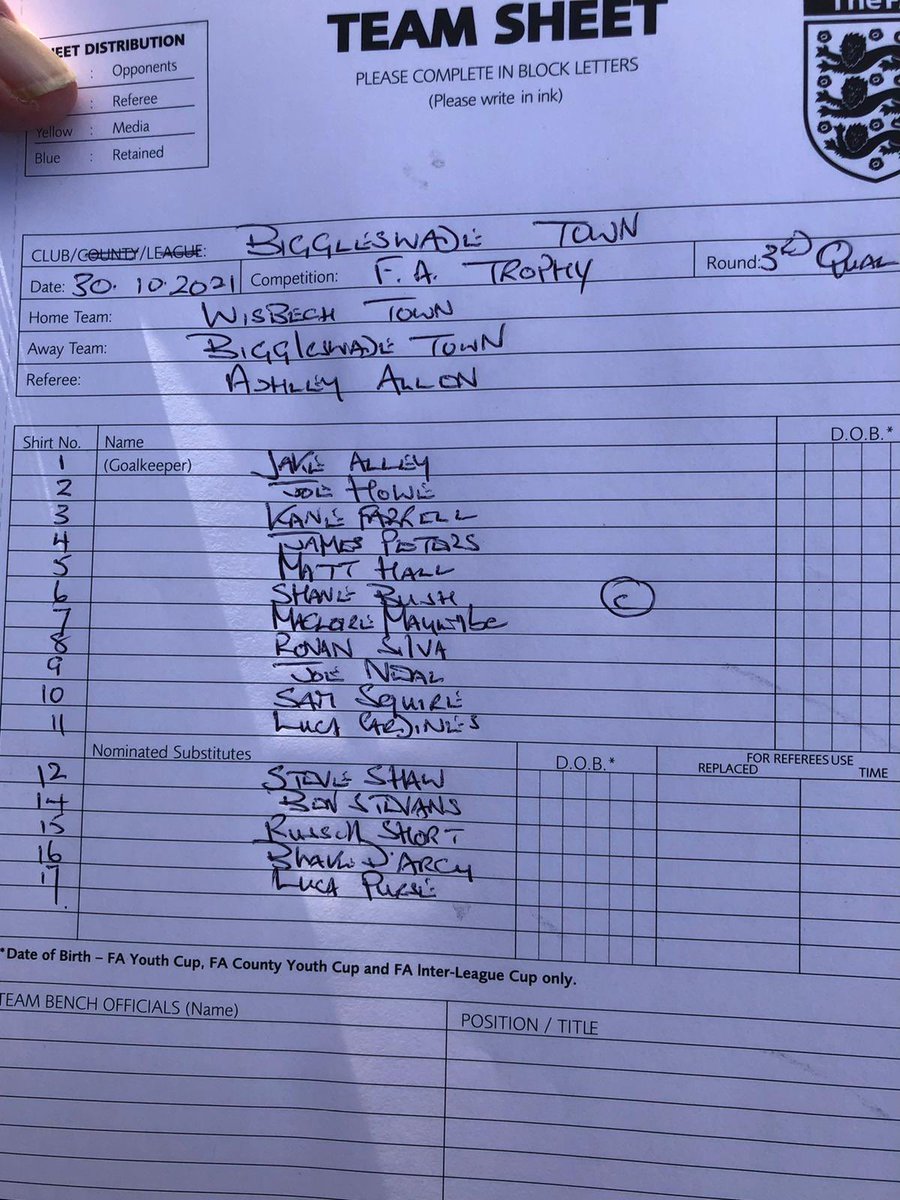 The F
TEAM SHEET
EET DISTRIBUTION
: Opponents
: Referee
Yellow : Media
Blue : Retained
PLEASE COMPLETE IN BLOCK LETTERS
(Please write in ink)
CLUB/COUNTY/LEAGUE: BIGGLESWADE TOWN
Date: 30.10.2021 Competition: F.A. TROPHY Round: 3RD QUAL
Home Team: WISBECH TOWN
Away Team: BIGGLESWADE TOWN
Referee: ASHLEY ALLON
Shirt No. Name D.O.B.*
1 (Goalkeeper) JAKE ALLEY
2 JOE HOWE
3 KANE FARRELL
4 JAMES PETERS
5 MATT HALL
6 SHANE BUSH C
7
8 RONAN SILVA
9 JOE NEAL
10 SAM SQUIRE
11 LUCA CARDINES
Nominated Substitutes D.O.B.* FOR REFEREES USE
REPLACED TIME
12 STEVE SHAW
14 BEN STEVANS
15 RUSSELL SHORT
16 BLAKE D'ARCY
17 LUCA PURSE
*Date of Birth – FA Youth Cup, FA County Youth Cup and FA Inter-League Cup only.
TEAM BENCH OFFICIALS (Name) POSITION / TITLE